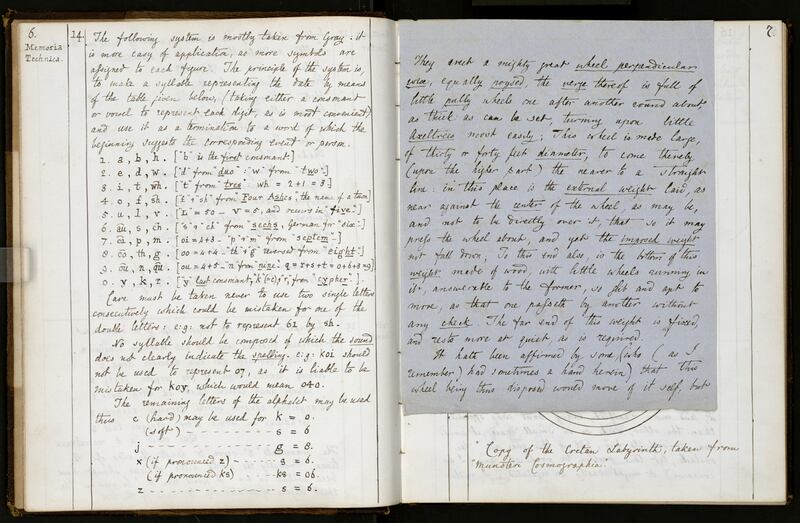 6.
Memoria
Technica.
14.
The following system is mostly taken from Gray: it
is more easy of application, as more symbols are
assigned to each figure. The principle of the system is,
to make a syllable representing the date by means
of the table given below, (taking either a consonant
or vowel to represent each digit, as is most convenient)
and use it as a termination to a word of which the
beginning suggests the corresponding event or person.
1. a, b, h. ["b" is the first consonant]
2. e, d, w. ["d" from "duo": "w" from "two":]
3. i, t, wh. ["t" from "tres": wh = 2+1 = 3]
4. o, f, sh. ["f" & "sh" from "Four Ashes" the name of a town]
5. u, l, v. ["L" = 50 – V = 5, and recurs in "five":]
6. au, s, ch. ["s" & "ch" from "sechs", German for "six":]
7. oi, p, m. [oi = 4+3 – "p" & "m" from "septem":]
8. oo, th, g. [oo = 4+4 – "th" & "g" reversed from "eight":]
9. ou, n, qu. [ou = 4+5 – "n" from "nine":
0. y, k, r. ["y" last consonant, "k" (=c), "r", from "cypher":]
Care must be taken never to use two single letters
consecutively which could be mistaken for one of the
double letters: e:g: not to represent 61 by sh.
No syllable should be composed of which the sound
does not clearly indicate the spelling. e:g: koi should
not be used to represent 07, as it is liable to be
mistaken for koy, which would mean 040.
The remaining letters of the alphabet may be used
thus c (hard) may be used for k = 0.
(soft) s = 6
j g = 8.
x (if pronounced z) s = 6.
(if pronounced ks) ks = 06.
z s = 6.
7.
They erect a mighty great wheel perpendicular
wise, equally poysed, the verge thereof is full of
little pully wheels one after another round about
as thick as can be set, turning upon little
Axeltrees most easily; This wheel is made large,
of thirty or forty feet diameter, to come thereby
(upon the higher part) the nearer to a straight
line: in this place is the external weight laid, as
near against the center of the wheel as may be,
and not to be directly over it, that so it may
press the wheel about, and yet the weight
not fall down; To this end also, is the bottom of this
weight made of wood, with little wheels running in
it, answerable to the former, so apt and apt to
more, as that one passeth by another without
any check. The far end of this weight is fixed,
and rests more at quiet, as is required.
It hath been affirmed by some (who (as I
remember) had sometimes a hand herein) that this
wheel being thus disposed would move of it self, but
"Copy of the Cretan Labyrinth, taken from
"Munster Cosmographia."